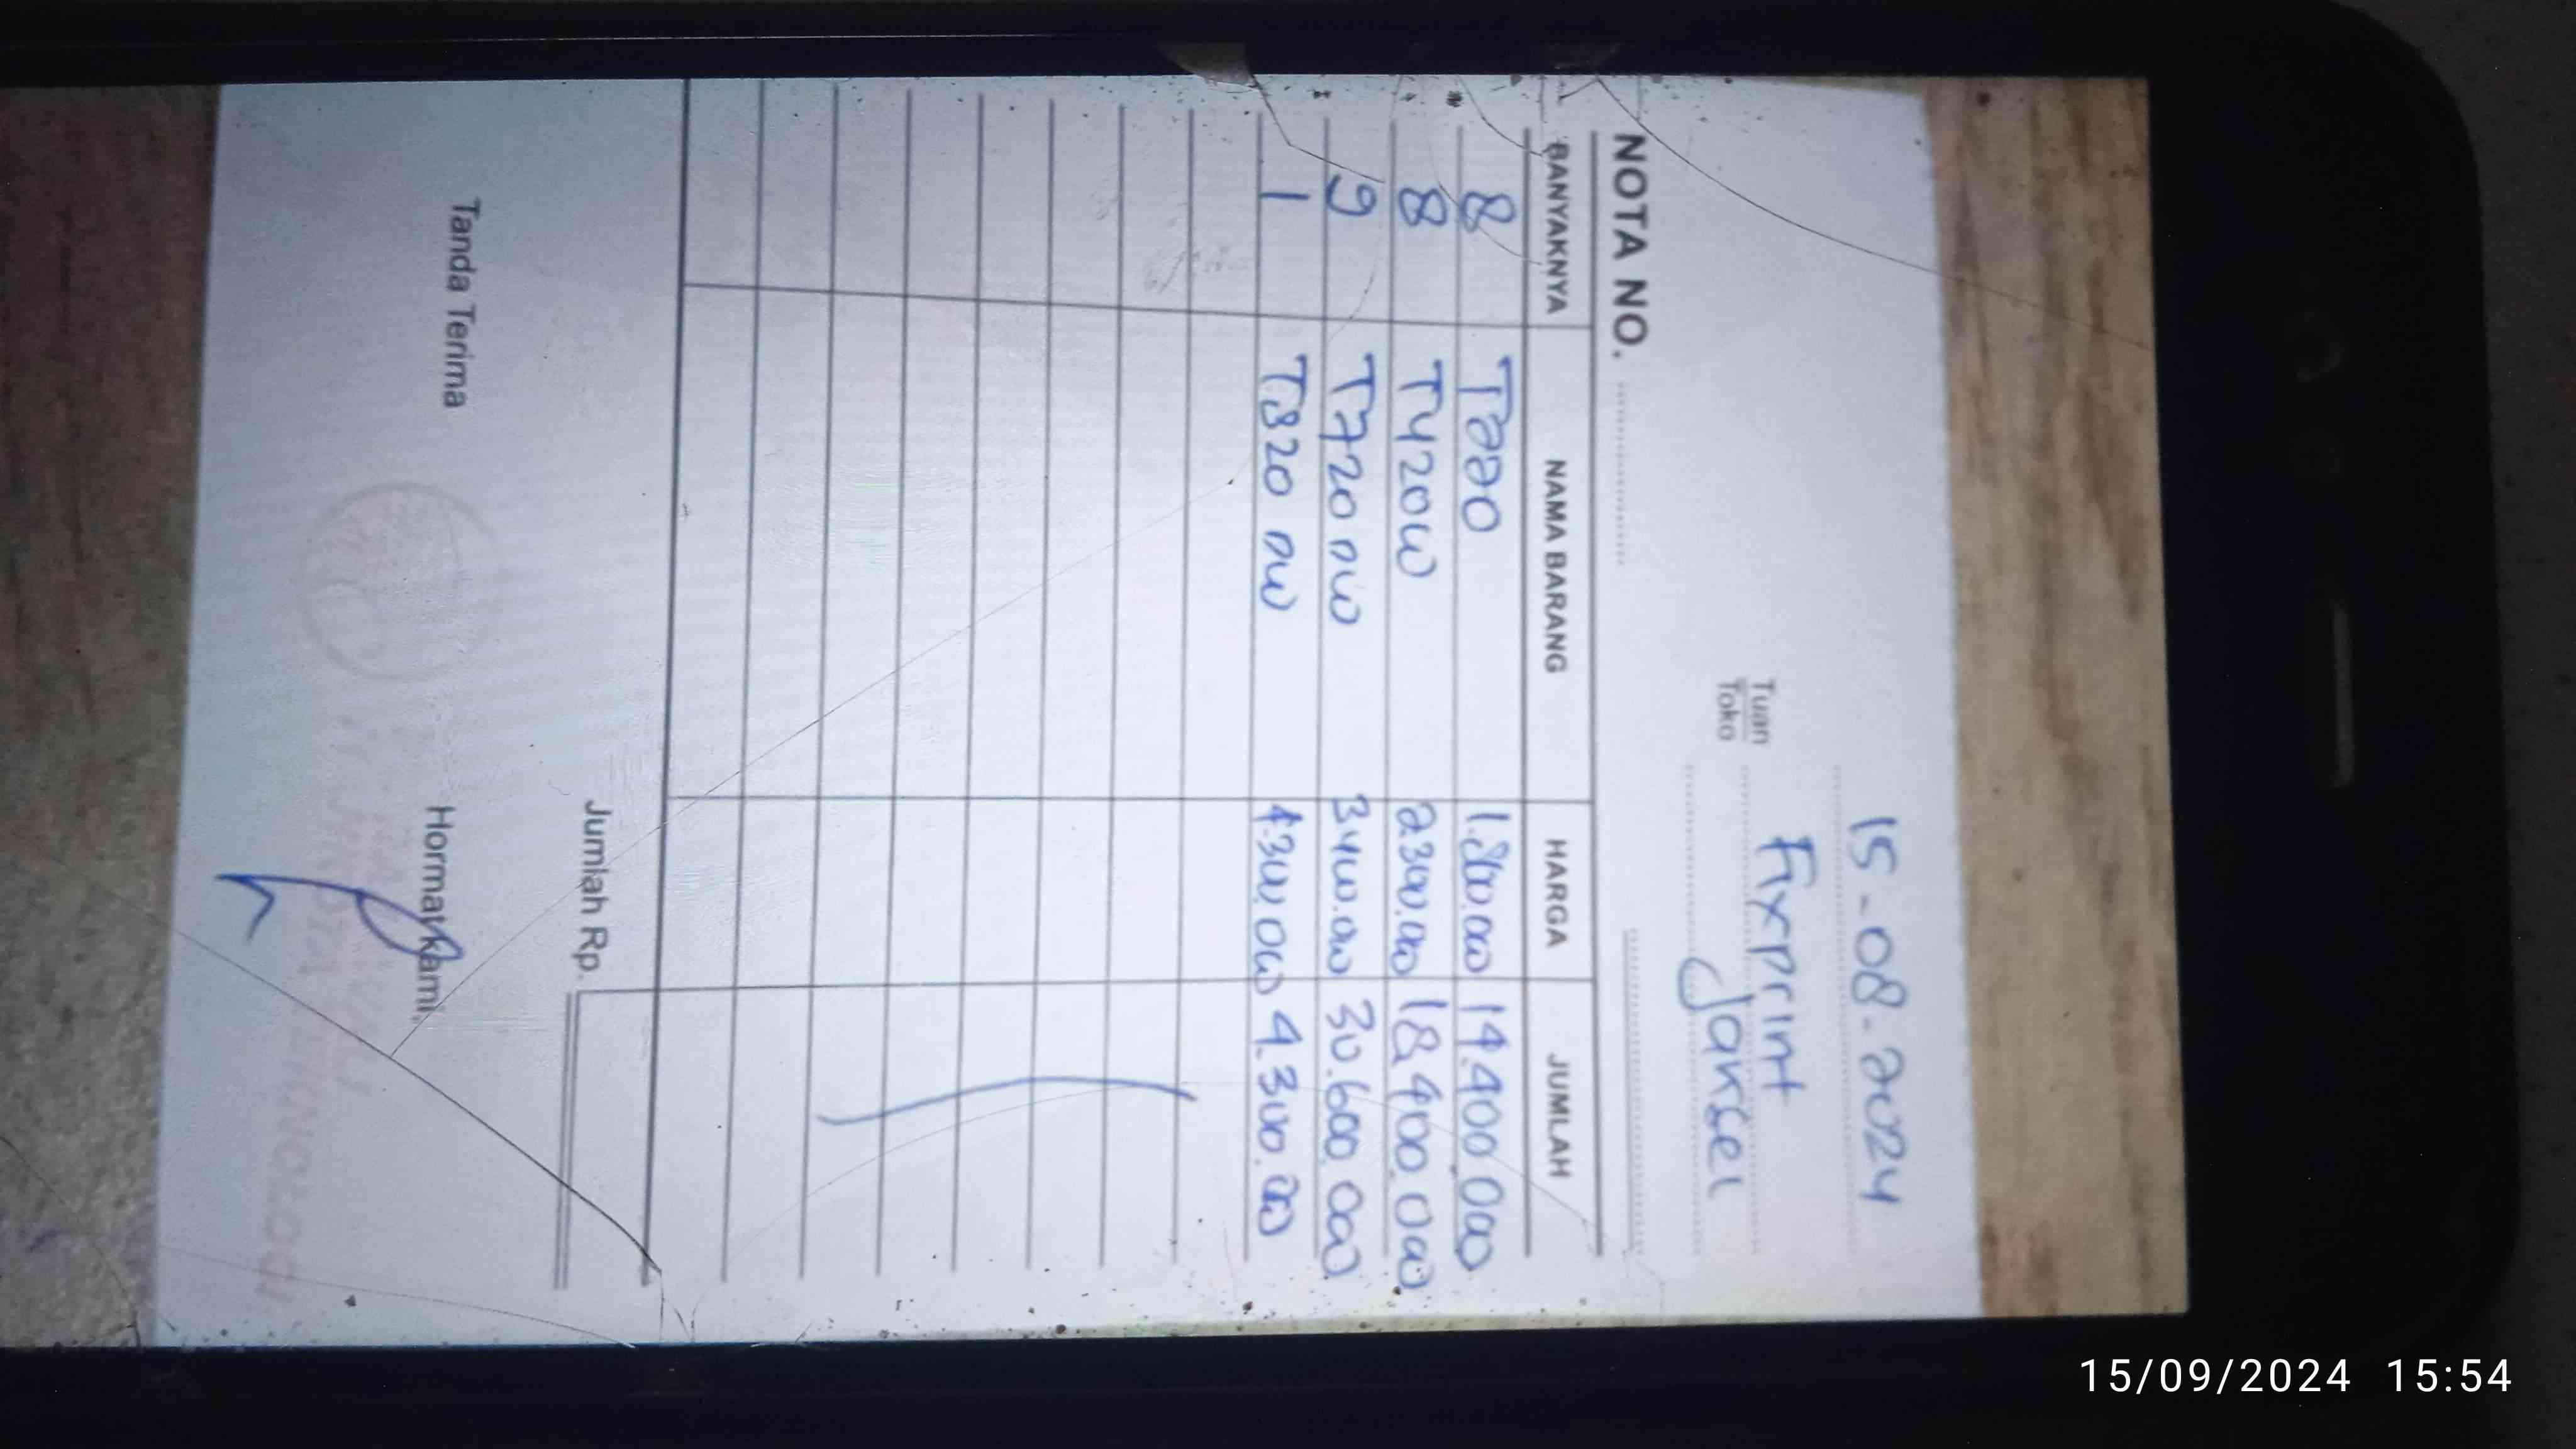 15-08-2024
Tuan Fixprint
Toko Jaksel
NOTA NO.
BANYAKNYA NAMA BARANG HARGA JUMLAH
8 T220 1.800.000 14.400.000
8 T420W 2.300.000 18.400.000
9 T720 DW 3.400.000 30.600.000
1 T820 DW 4.300.000 4.300.000
Jumlah Rp.
Tanda Terima Hormat kami,
15/09/2024 15:54